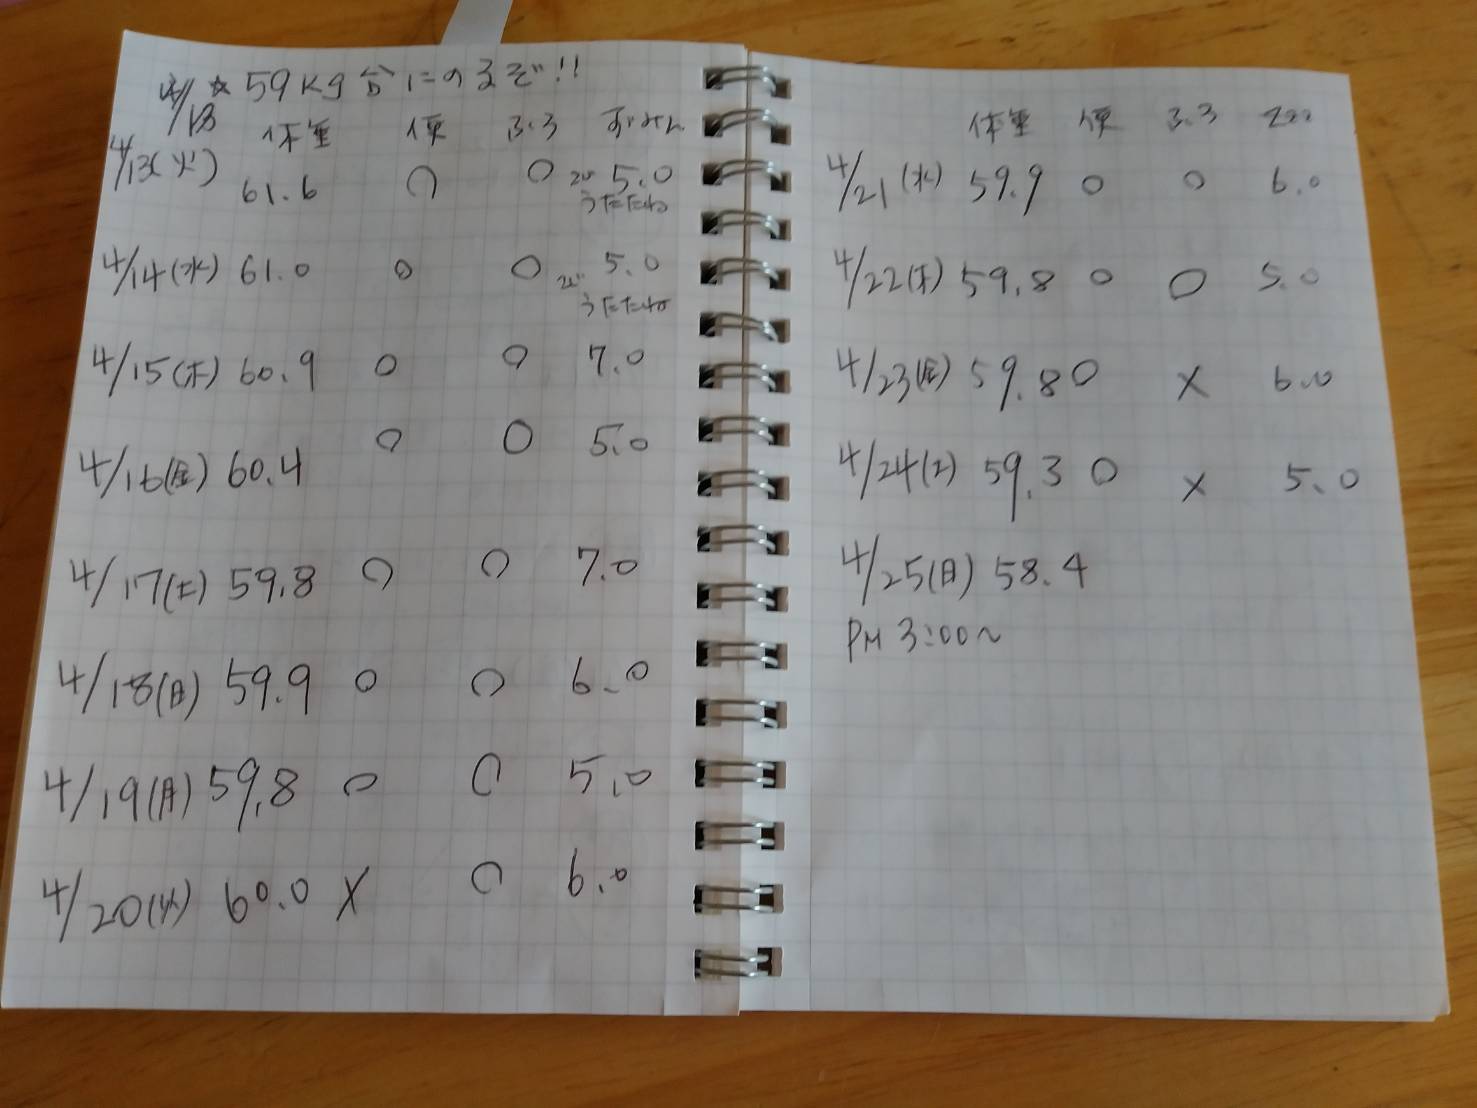 4/13 ☆59kg台にのるぞ!!
体重 便 3.3 すいみん
4/13(火) 61.6 ○ ○ 5.0
うたたね
4/14(水) 61.0 ○ ○ 5.0
うたたね
4/15(木) 60.9 ○ ○ 7.0
4/16(金) 60.4 ○ ○ 5.0
4/17(土) 59.8 ○ ○ 7.0
4/18(日) 59.9 ○ ○ 6.0
4/19(月) 59.8 ○ ○ 5.0
4/20(火) 60.0 × ○ 6.0
体重 便 3.3 Zzz
4/21(水) 59.9 ○ ○ 6.0
4/22(木) 59.8 ○ ○ 5.0
4/23(金) 59.8 ○ × 6.0
4/24(土) 59.3 ○ × 5.0
4/25(日) 58.4
PM 3:00~